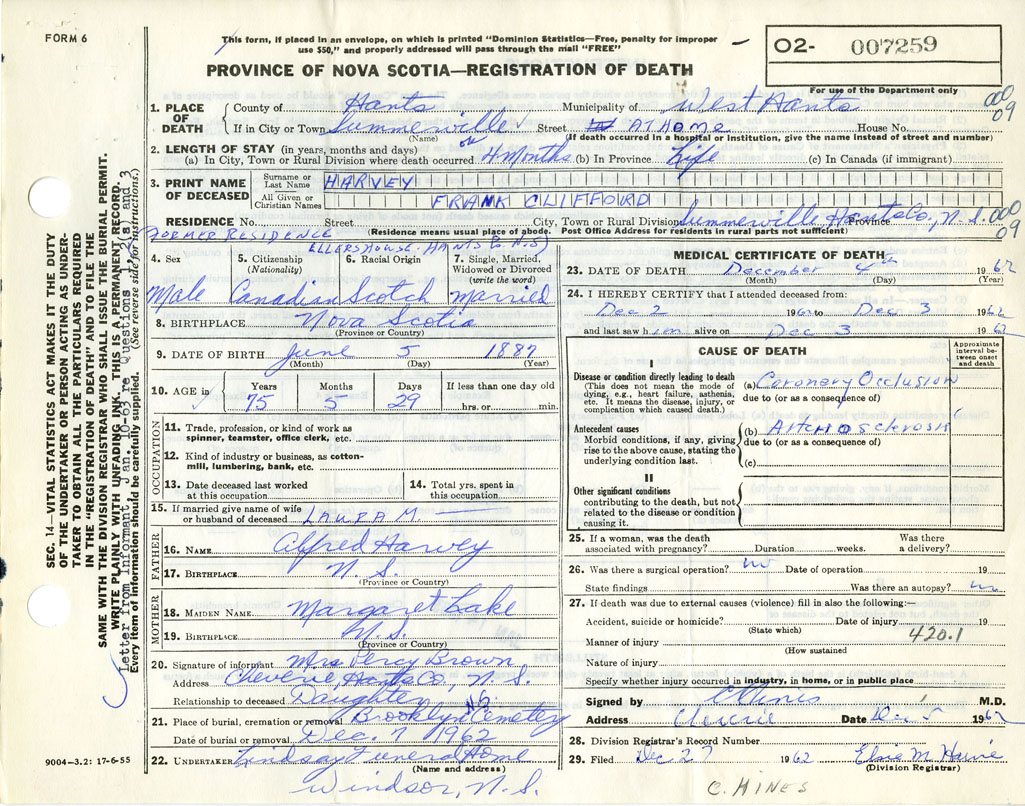 FORM 6
This form, if placed in an envelope, on which is printed "Dominion Statistics—Free, penalty for improper
use $50," and properly addressed will pass through the mail "FREE"
PROVINCE OF NOVA SCOTIA—REGISTRATION OF DEATH
O2- 007259
For use of the Department only
000
09
1. PLACE OF DEATH
County of Hants Municipality of West Hants
If in City or Town Summerville Street AT HOME House No.
(Name) (If death occurred in a hospital or institution, give the name instead of street and number)
2. LENGTH OF STAY (in years, months and days)
(a) In City, Town or Rural Division where death occurred 4 Months (b) In Province Life (c) In Canada (if immigrant)
3. PRINT NAME OF DECEASED
Surname or Last Name HARVEY
All Given or Christian Names FRANK CLIFFORD
RESIDENCE No. Street City, Town or Rural Division Summerville Hants Co, N.S. Province
000
09
(Residence means usual place of abode. Post Office Address for residents in rural parts not sufficient)
FORMER RESIDENCE
ELLERSHOUSE. HANTS Co N.S
4. Sex
Male
5. Citizenship (Nationality)
Canadian
6. Racial Origin
Scotch
7. Single, Married, Widowed or Divorced (write the word)
married
8. BIRTHPLACE Nova Scotia
(Province or Country)
9. DATE OF BIRTH June 5 1887
(Month) (Day) (Year)
10. AGE in
Years Months Days If less than one day old
75 5 29 hrs. or min.
OCCUPATION
11. Trade, profession, or kind of work as
spinner, teamster, office clerk, etc.
12. Kind of industry or business, as cotton-
mill, lumbering, bank, etc.
13. Date deceased last worked
at this occupation
14. Total yrs. spent in
this occupation
15. If married give name of wife
or husband of deceased LAURA M.
FATHER
16. NAME Alfred Harvey
17. BIRTHPLACE N.S.
(Province or Country)
MOTHER
18. MAIDEN NAME Margaret Lake
19. BIRTHPLACE N.S.
(Province or Country)
20. Signature of informant Mrs Percy Brown
Address Cheverie, Hants Co, N.S.
Relationship to deceased Daughter
21. Place of burial, cremation or removal Brooklyn Cemetery N.S.
Date of burial or removal Dec. 7 1962
22. UNDERTAKER Lindsay Funeral Home
(Name and address)
Windsor, N.S.
MEDICAL CERTIFICATE OF DEATH
23. DATE OF DEATH December 4th 1962
(Month) (Day) (Year)
24. I HEREBY CERTIFY that I attended deceased from:
Dec 2 1962 to Dec 3 1962
and last saw him alive on Dec 3 1962
CAUSE OF DEATH
Approximate interval between onset and death
I
Disease or condition directly leading to death
(This does not mean the mode of
dying, e.g., heart failure, asthenia,
etc. It means the disease, injury, or
complication which caused death.)
(a) Coronary Occlusion
due to (or as a consequence of)
Antecedent causes
Morbid conditions, if any, giving
rise to the above cause, stating the
underlying condition last.
(b)
due to (or as a consequence of)
(c)
II
Other significant conditions
contributing to the death, but not
related to the disease or condition
causing it.
25. If a woman, was the death
associated with pregnancy? Duration weeks. Was there
a delivery?
26. Was there a surgical operation? no Date of operation 19
State findings Was there an autopsy? no
27. If death was due to external causes (violence) fill in also the following:—
Accident, suicide or homicide? Date of injury 19
(State which)
420.1
Manner of injury
(How sustained
Nature of injury
Specify whether injury occurred in industry, in home, or in public place
Signed by C Hines M.D.
Address Cheverie Date Dec 5 1962
28. Division Registrar's Record Number
29. Filed Dec 27 1962 Elsie M.
(Division Registrar)
C. HINES
SEC. 14—VITAL STATISTICS ACT MAKES IT THE DUTY
OF THE UNDERTAKER OR PERSON ACTING AS UNDER-
TAKER TO OBTAIN ALL THE PARTICULARS REQUIRED
IN THE "REGISTRATION OF DEATH" AND TO FILE THE
SAME WITH THE DIVISION REGISTRAR WHO SHALL ISSUE THE BURIAL PERMIT.
WRITE PLAINLY WITH UNFADING INK. THIS IS A PERMANENT RECORD.
Letter from Informant Jan. re Questions 1, 2(a) and 3
Every item of information should be carefully supplied. (See reverse side for instructions.)
9004—3.2: 17-6-55